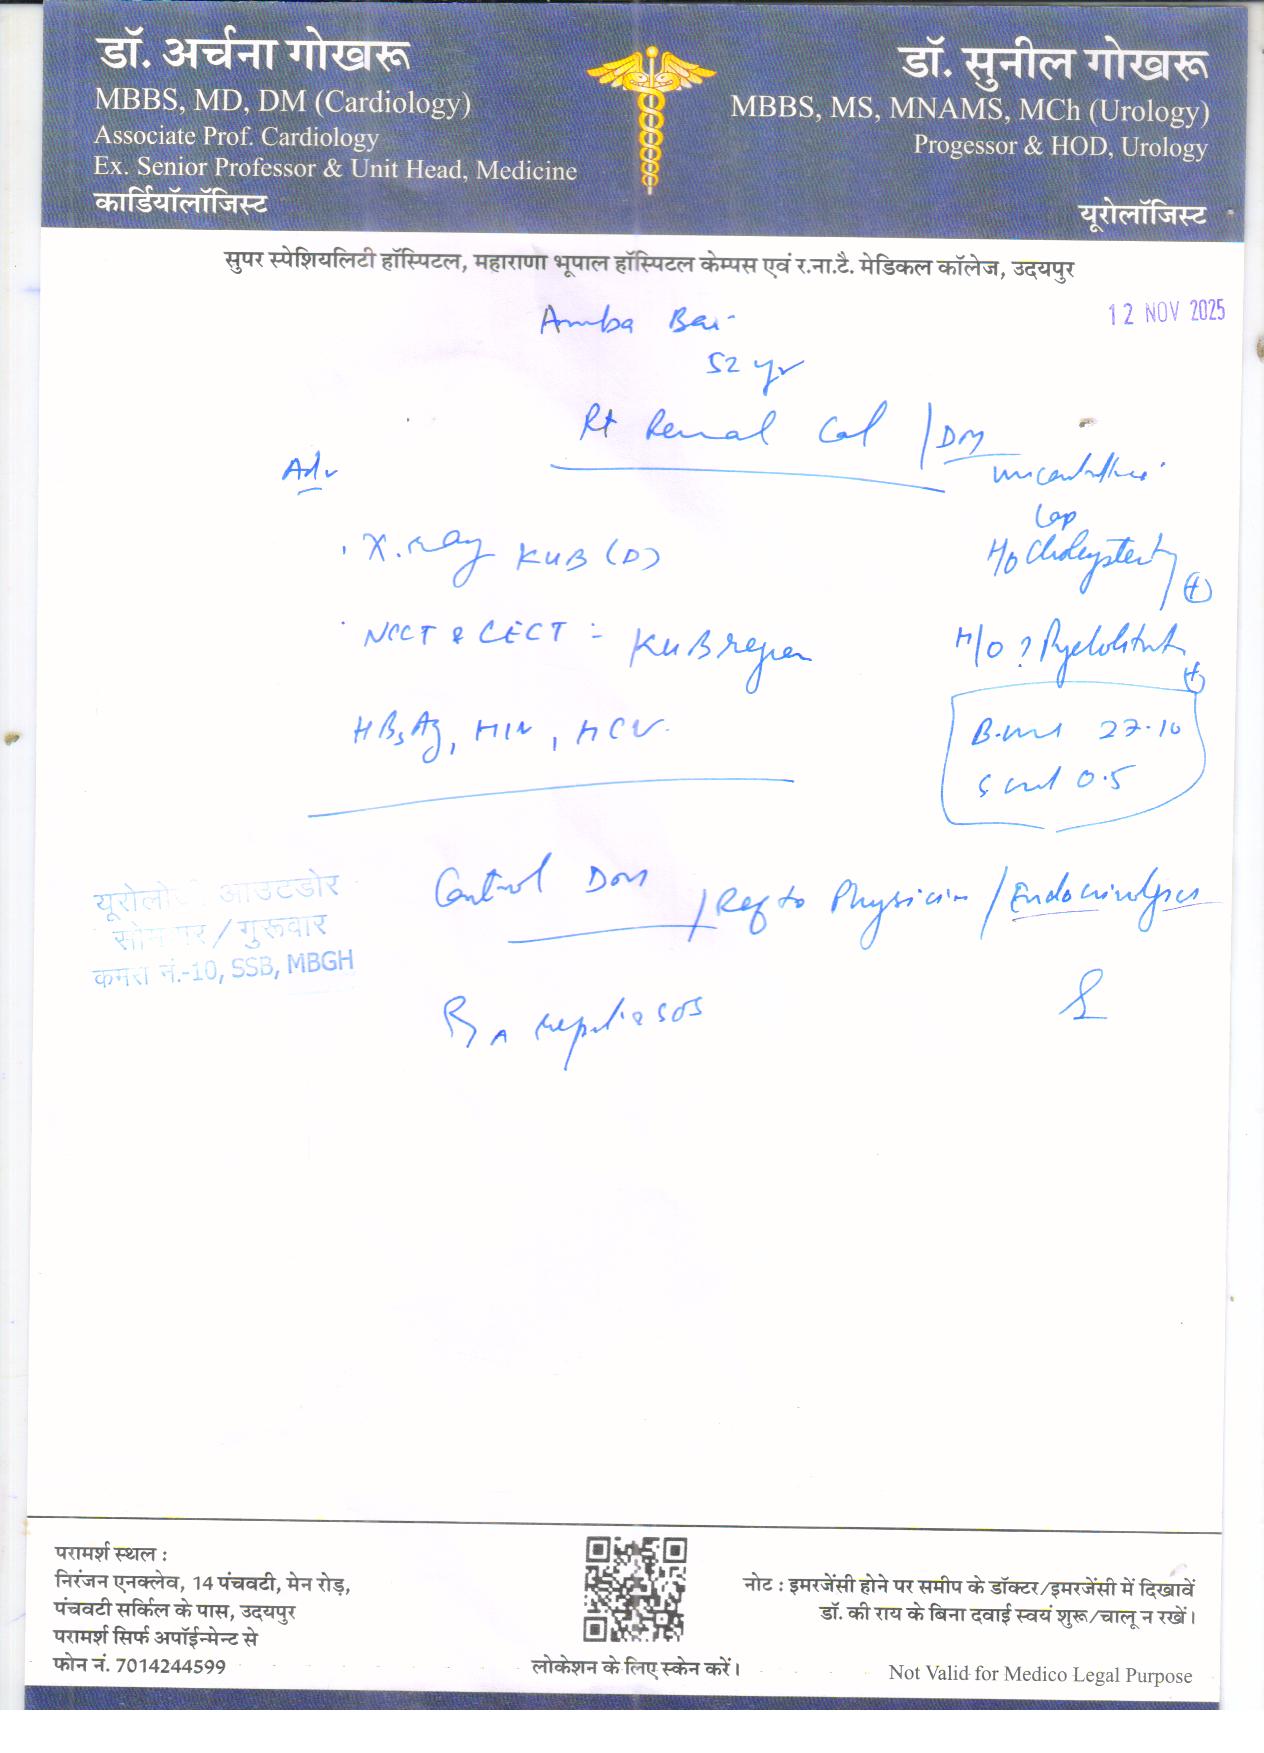 डॉ. अर्चना गोखरू
MBBS, MD, DM (Cardiology)
Associate Prof. Cardiology
Ex. Senior Professor & Unit Head, Medicine
कार्डियॉलॉजिस्ट
डॉ. सुनील गोखरू
MBBS, MS, MNAMS, MCh (Urology)
Progessor & HOD, Urology
यूरोलॉजिस्ट
सुपर स्पेशियलिटी हॉस्पिटल, महाराणा भूपाल हॉस्पिटल केम्पस एवं र.ना.टै. मेडिकल कॉलेज, उदयपुर
12 NOV 2025
Amba Bai
52 yr
Rt Renal Cal / DM
Adv
X.ray KUB (D)
Lap
H/o
NCCT & CECT :- KUB region
H/O ?
HBsAg, HIV, HCV
27.10
S 0.5
Control / Ref to Physician / Endocrinologist
SOS
यूरोलॉजी आउटडोर
सोमवार / गुरूवार
कमरा नं.-10, SSB, MBGH
परामर्श स्थल :
निरंजन एनक्लेव, 14 पंचवटी, मेन रोड़,
पंचवटी सर्किल के पास, उदयपुर
परामर्श सिर्फ अपॉईन्मेन्ट से
फोन नं. 7014244599
लोकेशन के लिए स्केन करें।
नोट : इमरजेंसी होने पर समीप के डॉक्टर/इमरजेंसी में दिखावें
डॉ. की राय के बिना दवाई स्वयं शुरू/चालू न रखें।
Not Valid for Medico Legal Purpose